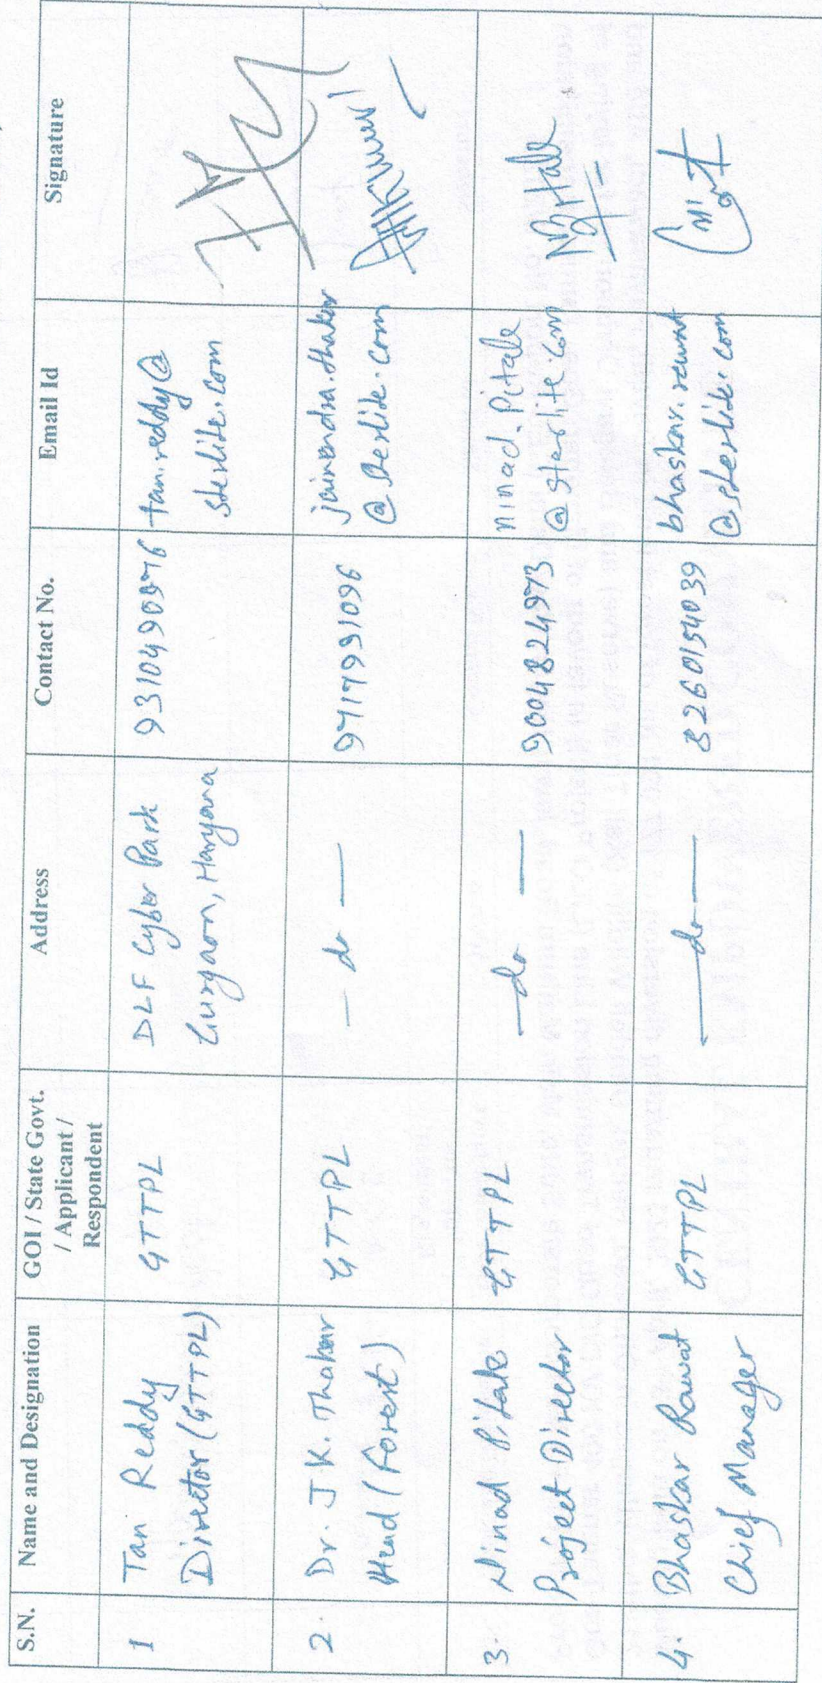 S.N.
Name and Designation
GOI / State Govt.
/ Applicant /
Respondent
Address
Contact No.
Email Id
Signature
1
Tani Reddy
Director (GTTPL)
GTTPL
DLF Cyber Park
Gurgaon, Haryana
9310490976
tani.reddy@
sterlite.com
2.
Dr. J K. Thakar
Head (Forest)
GTTPL
— do —
9717991096
@sterlite.com
3.
Ninad Pitale
Project Director
GTTPL
— do —
9004824973
ninad.Pitale
@sterlite.com
NPitale
4.
Bhaskar Rawat
Chief Manager
GTTPL
— do —
8260154039
bhaskar.rawat
@sterlite.com